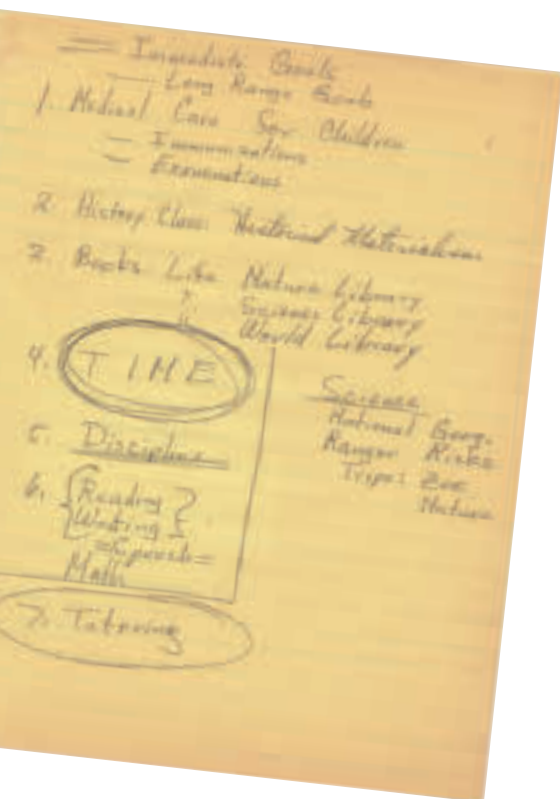 Immediate Goals
Long Range Goals
1. Medical Care for Children
Immunizations
Examinations
2. History Class: Historical Materialism
3. Books Life Nature Library
" Science Library
" World Library
4. TIME
5. Discipline
6. {Reading}
{Writing}
=Speech=
Math
7. Tutoring
Science
National Geog.
Ranger Ricks
Trips: Zoo
Nature